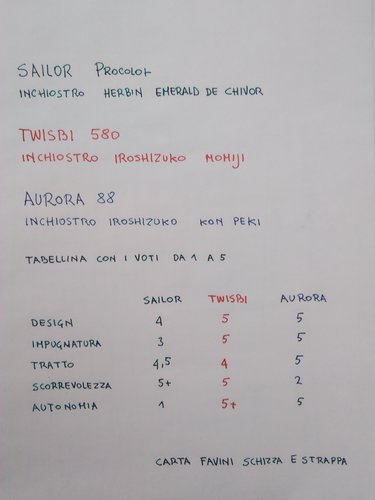 SAILOR PROCOLOR
INCHIOSTRO HERBIN EMERALD DE CHIVOR
TWISBI 580
INCHIOSTRO IROSHIZUKO MOMIJI
AURORA 88
INCHIOSTRO IROSHIZUKO KON PEKI
TABELLINA CON I VOTI DA 1 A 5
SAILOR TWISBI AURORA
DESIGN 4 5 5
IMPUGNATURA 3 5 5
TRATTO 4,5 4 5
SCORREVOLEZZA 5+ 5 2
AUTONOMIA 1 5+ 5
CARTA FAVINI SCHIZZA E STRAPPA